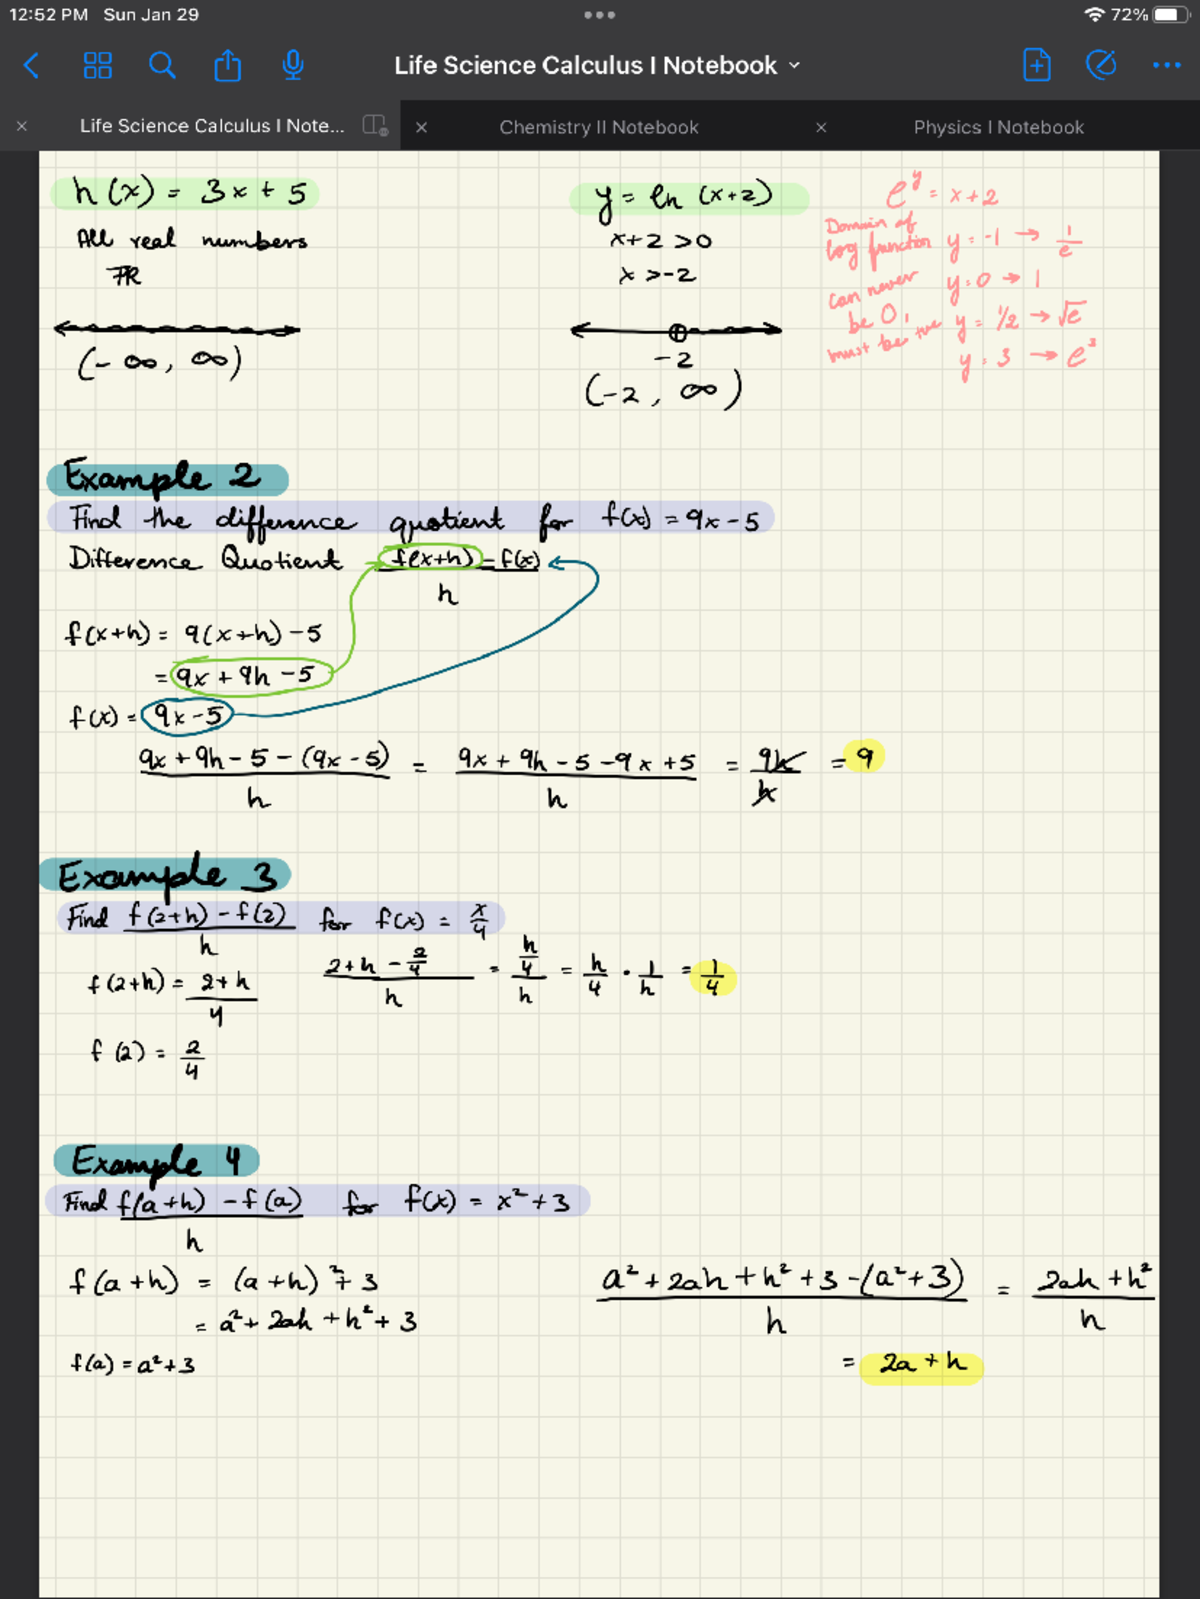 12:52 PM Sun Jan 29
72%
Life Science Calculus I Notebook
Life Science Calculus I Note...
Chemistry II Notebook
Physics I Notebook
h(x) = 3x + 5
All real numbers
ℝ
(-∞, ∞)
y = ln (x+2)
x+2 >0
x >-2
-2
(-2, ∞)
e^y = x+2
Domain of
log function
can never
be 0,
must be +ve
y = -1 → 1/e
y = 0 → 1
y = 1/2 → √e
y = 3 → e³
Example 2
Find the difference quotient for f(x) = 9x-5
Difference Quotient f(x+h) - f(x) / h
f(x+h) = 9(x+h) -5
= 9x + 9h -5
f(x) = 9x-5
9x + 9h - 5 - (9x - 5) / h = 9x + 9h - 5 -9x +5 / h = 9h / h = 9
Example 3
Find f(2+h) - f(2) / h for f(x) = x/4
f(2+h) = 2+h / 4
f(2) = 2/4
2+h - 2/4 / h = h/4 / h = h/4 · 1/h = 1/4
Example 4
Find f(a+h) - f(a) / h for f(x) = x² +3
f(a+h) = (a+h)² + 3
= a² + 2ah + h² + 3
f(a) = a²+3
a² + 2ah + h² +3 -(a²+3) / h = 2ah + h² / h
= 2a + h